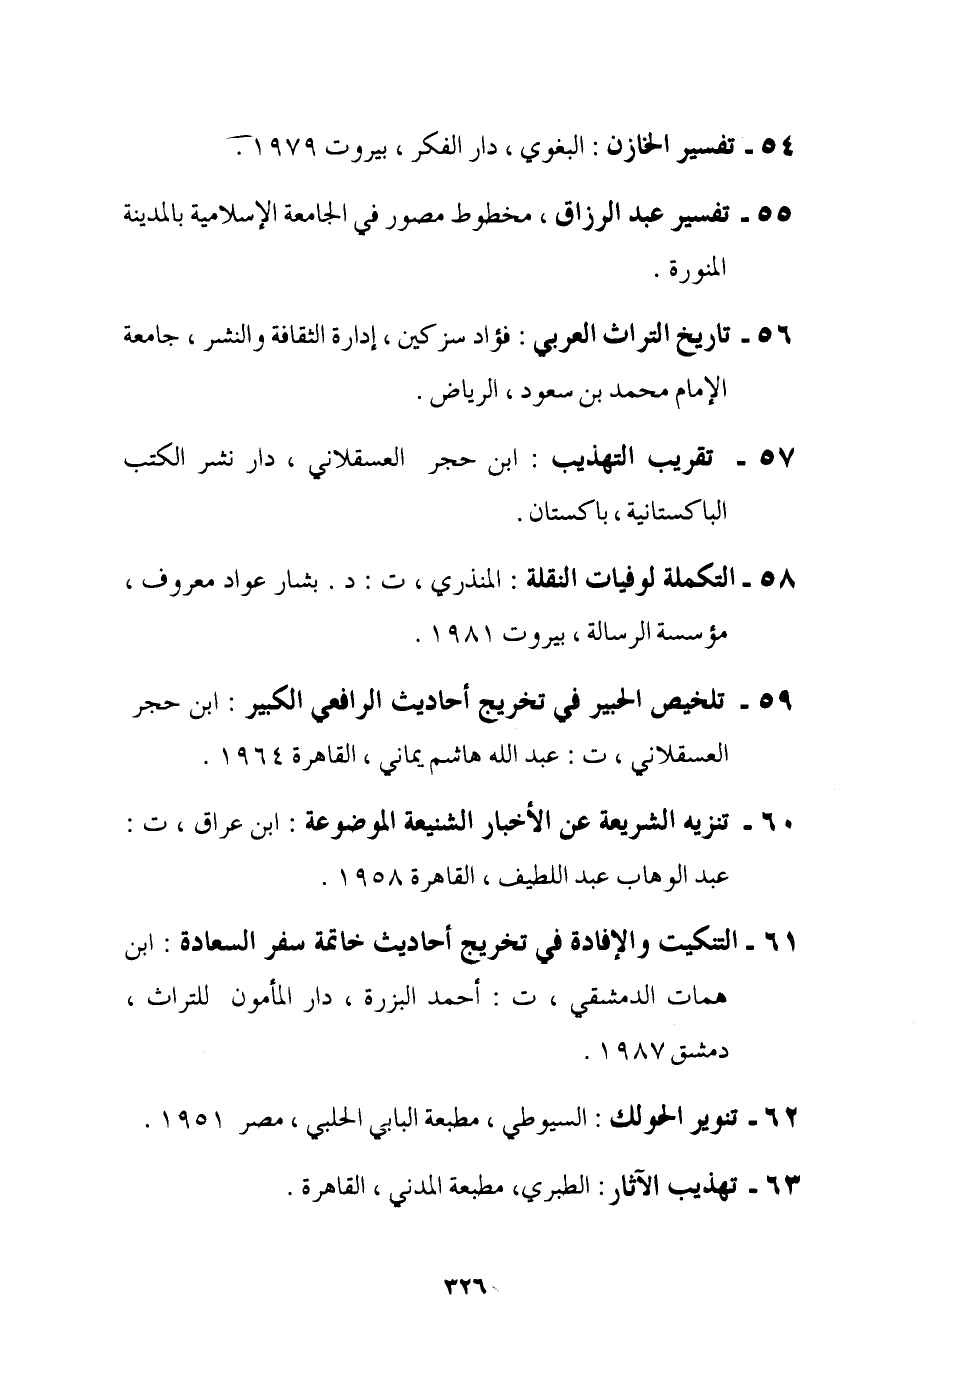 ٥٤ ـ تفسير الخازن : البغوي ، دار الفكر ، بيروت ١٩٧٩ .
٥٥ ـ تفسير عبد الرزاق ، مخطوط مصور في الجامعة الإسلامية بالمدينة
المنورة .
٥٦ ـ تاريخ التراث العربي : فؤاد سزكين ، إدارة الثقافة والنشر ، جامعة
الإمام محمد بن سعود ، الرياض .
٥٧ ـ تقريب التهذيب : ابن حجر العسقلاني ، دار نشر الكتب
الباكستانية ، باكستان .
٥٨ ـ التكملة لوفيات النقلة : المنذري ، ت : د . بشار عواد معروف ،
مؤسسة الرسالة ، بيروت ١٩٨١ .
٥٩ ـ تلخيص الحبير في تخريج أحاديث الرافعي الكبير : ابن حجر
العسقلاني ، ت : عبد الله هاشم يماني ، القاهرة ١٩٦٤ .
٦٠ ـ تنزيه الشريعة عن الأخبار الشنيعة الموضوعة : ابن عراق ، ت :
عبد الوهاب عبد اللطيف ، القاهرة ١٩٥٨ .
٦١ ـ التنكيت والإفادة في تخريج أحاديث خاتمة سفر السعادة : ابن
همات الدمشقي ، ت : أحمد البزرة ، دار المأمون للتراث ،
دمشق ١٩٨٧ .
٦٢ ـ تنوير الحولك : السيوطي ، مطبعة البابي الحلبي ، مصر ١٩٥١ .
٦٣ ـ تهذيب الآثار : الطبري، مطبعة المدني ، القاهرة .
٣٢٦